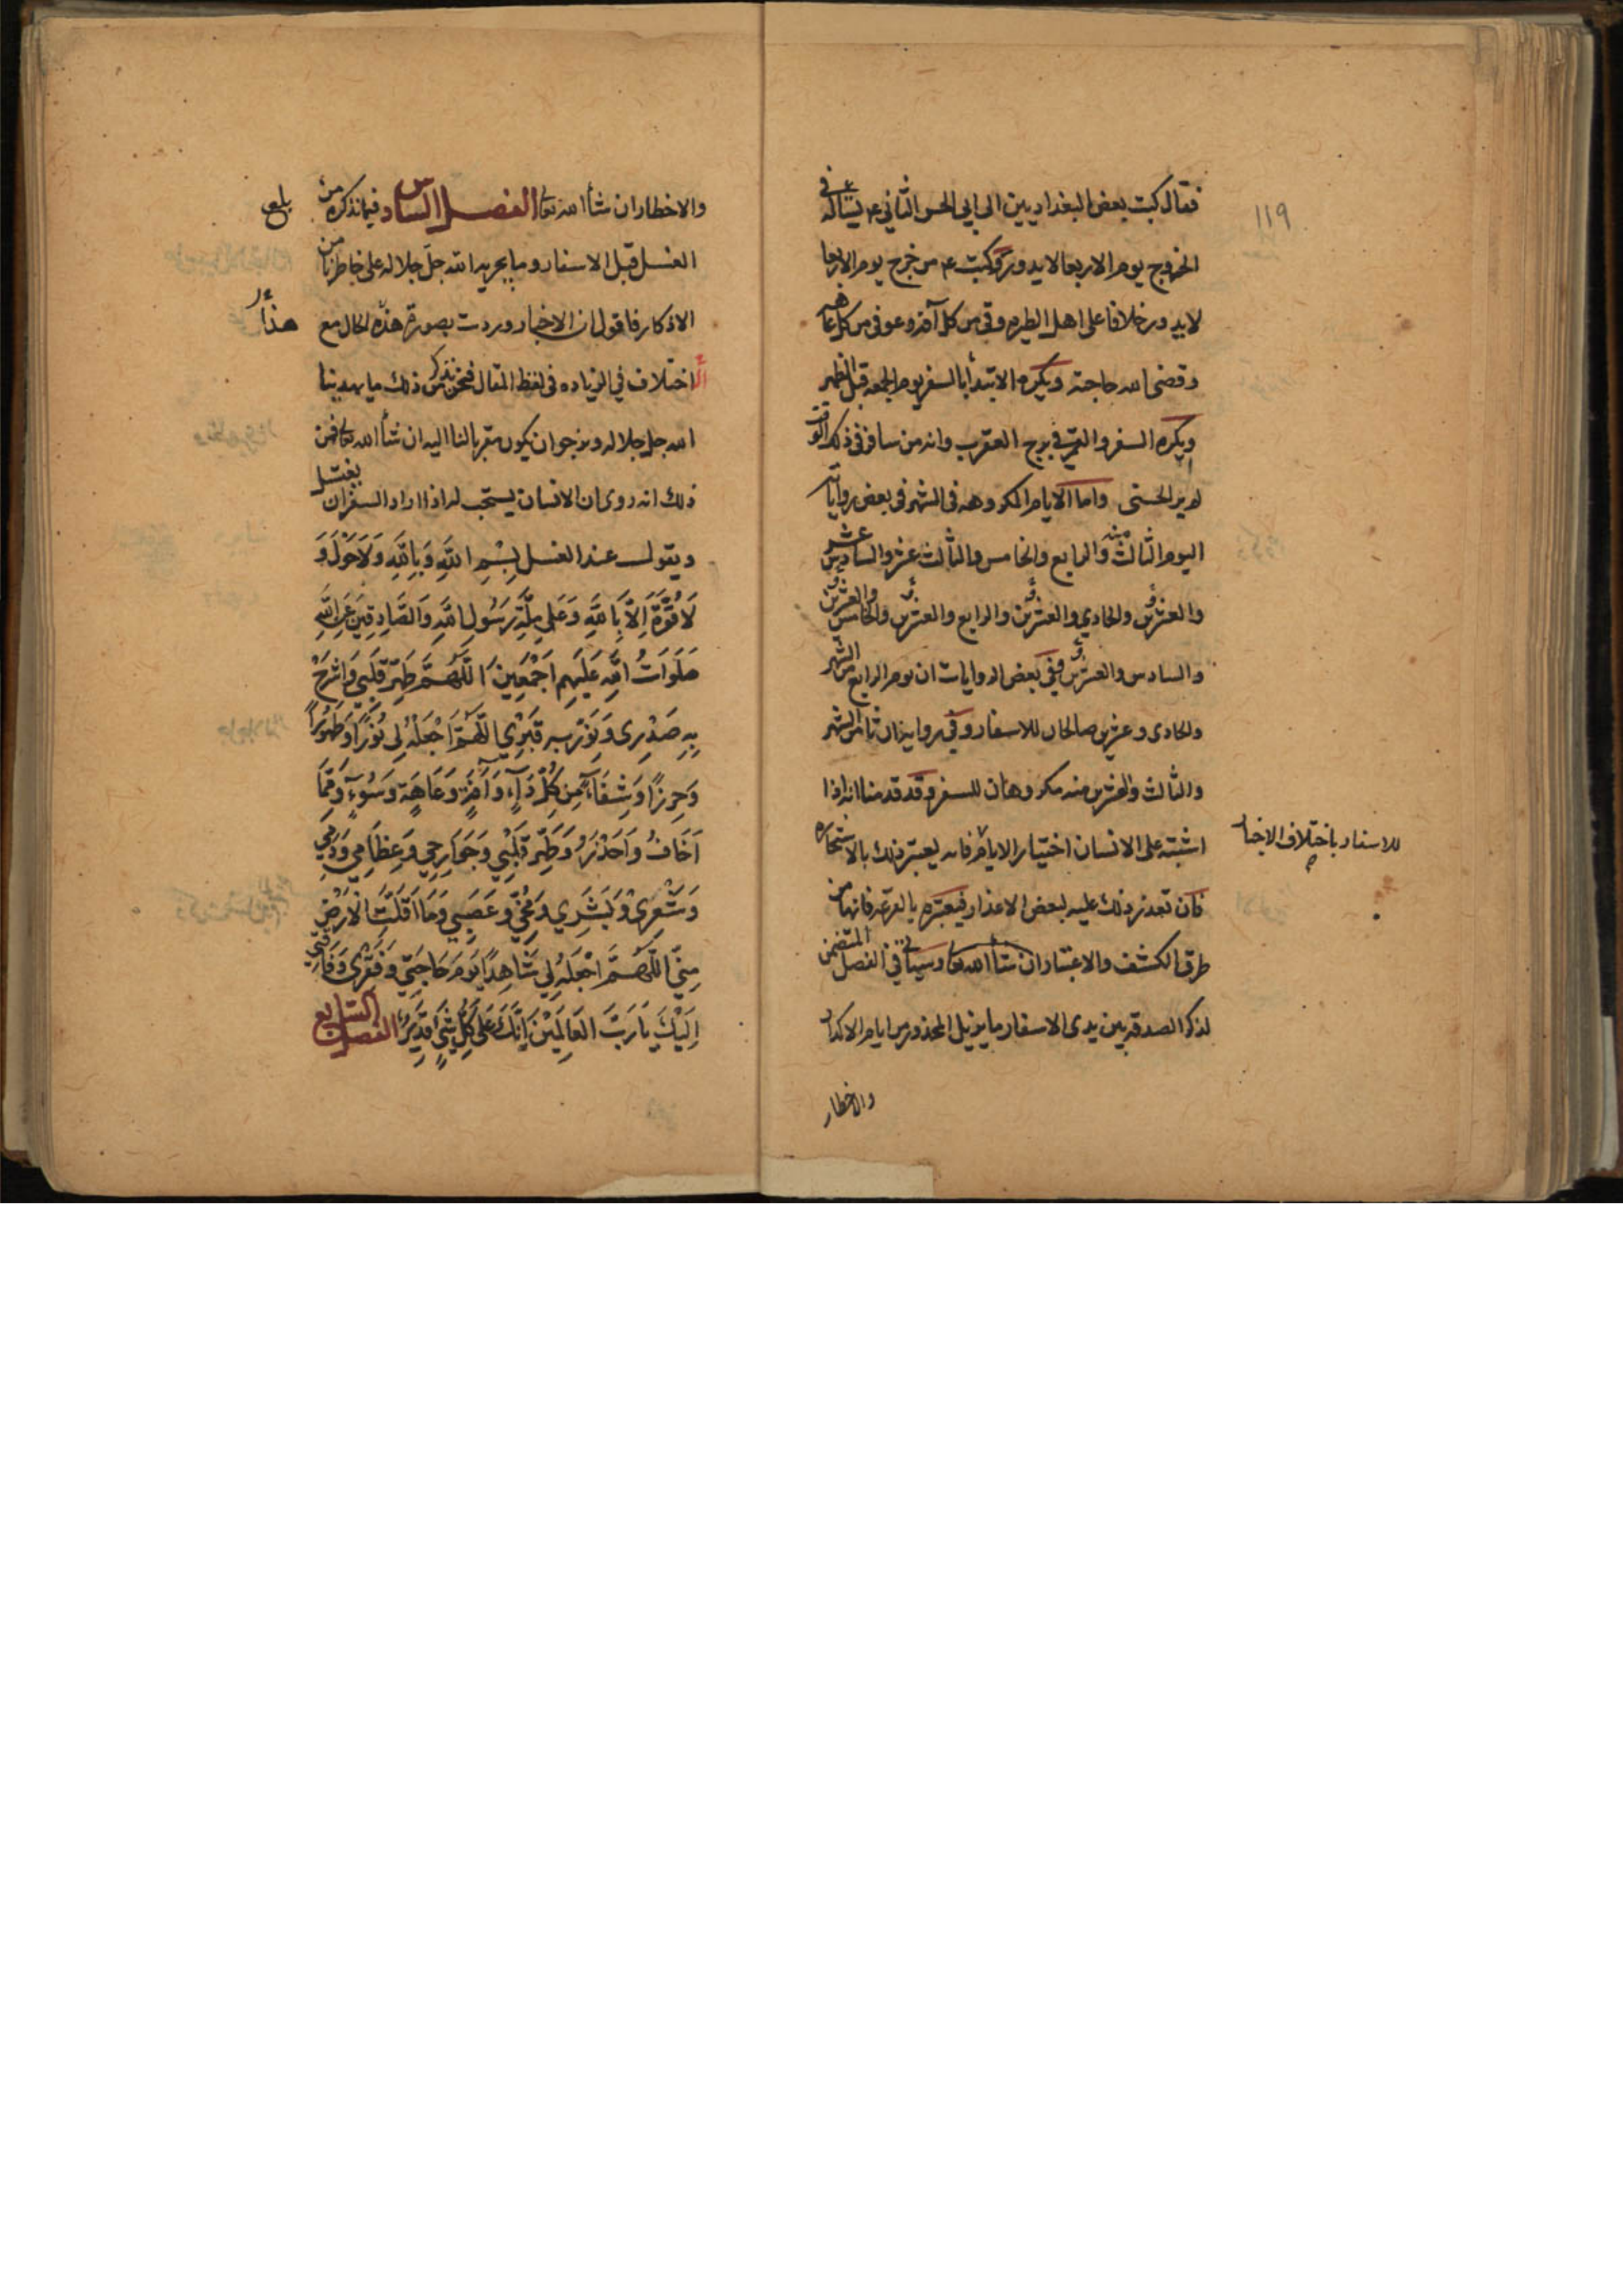 ١١٩
فقال كتب بعض البغداديين الى ابي الحسن الثاني ع يسأله عن
الخروج يوم الاربعا لا يدور وكتب ع من خرج يوم الاربعا
لا يدور خلافا على اهل الطيره وقي من كل آفة وعوفي من كل عاهه
وقضى الله حاجته ويكره الابتدأ بالسفر يوم الجمعه قبل الظهر
ويكره السفر والقمر في برج العقرب وانه من سافر في ذلك الوقت
لم ير الحسنى واما الايام المكروهه في الشهر في بعض روايات
اليوم الثالث منه والرابع والخامس والثالث عشر والسادس عشر
والعشرين والحادي والعشرين والرابع والعشرين والخامس والعشرين
والسادس والعشرين وفي بعض الروايات ان يوم الرابع من الشهر
والحادى وعشرين صالحان للاسفار وفي رواية ان ثامن الشهر
والثالث والعشرين منه مكروهان للسفر وقد قدمنا انه اذا
اشتبه على الانسان اختيار الايام فانه يعتبر ذلك بالاستخاره
للاسفار باختلاف الاخبار
فان تعذر ذلك عليه لبعض الاعذار فيعتبره بالقرعه فانها من
طرق الكشف والاعتبار ان شأ الله تعا وسيأتي في الفصل المتضمن
لذكر الصدقه بين يدى الاسفار ما يزيل المحذور من ايام الاكدار
والاخطار
والاخطار ان شأ الله تعا الفصل السادس فيما نذكره من
بلغ
الغسل قبل الاسفار وما يجريه الله جل جلاله على خاطرنا من
الاذكار فاقول ان الاخبار وردت بصورة هذه الحال مع
هذا
اختلاف في الزياده في لفظ المقال فنحن نذكر من ذلك ما يهدينا
الله جل جلاله ونرجوان يكون مقربا لنا اليه ان شأ الله تعا فمن
ذلك انه روى ان الانسان يستحب له اذا اراد السفر ان يغتسل
ويقول عند الغسل بِسْمِ اللَّهِ وَبِاللَّهِ وَلَا حَوْلَ وَ
لَا قُوَّةَ اِلَّا بِاللَّهِ وَعَلى مِلَّةِ رَسُولِ اللَّهِ وَالصَّادِقِينَ عَنِ اللَّهِ
صَلَوَاتُ اللَّهِ عَلَيْهِم اَجْمَعِينَ اَللَّهُمَّ طَهِّر قَلْبِي وَاشْرَحْ
بِهِ صَدْرِى وَنَوِّرْ بِهِ قَبْرِي اَللَّهُمَّ اجْعَلْهُ لِى نُورًا وَطَهُورًا
وَحِرزًا وَشِفَاءً مِن كُلِّ دَآءٍ وَآفَةٍ وَعَاهَةٍ وَسُوءٍ وَمِمَّا
اَخَافُ وَاَحْذَرُ وَطَهِّر قَلْبِي وَجَوَارِحِي وَعِظَامِي وَدَمِي
وَشَعْرِيْ وَبَشَرِي وَمُخِّي وعَصَبِي وَمَا اَقَلَّتِ الْاَرْضُ
مِنِّي اللَّهُمَّ اجْعَلْهُ لِي شَاهِدًا يَومَ حَاجَتِي وَفَقْرِى وَفَاقَتِي
اِلَيْكَ يَا رَبَّ العَالَمِيْنَ اِنَّكَ عَلى كُلِّ شَيءٍ قَدِيرٌ الفصل السابع